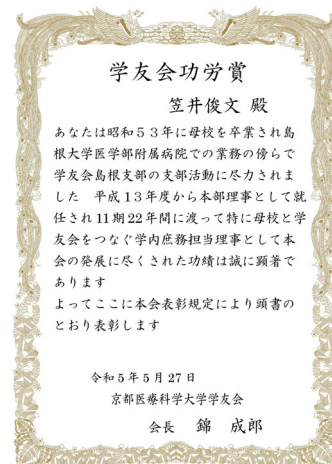 学友会功労賞
笠井俊文 殿
あなたは昭和５３年に母校を卒業され島
根大学医学部附属病院での業務の傍らで
学友会島根支部の支部活動に尽力されま
した　平成１３年度から本部理事として就
任され 11 期 22 年間に渡って特に母校と学
友会をつなぐ学内庶務担当理事として本
会の発展に尽くされた功績は誠に顕著で
あります
よってここに本会表彰規定により頭書の
とおり表彰します
令和 5 年 5 月 27 日
京都医療科学大学学友会
会長　錦　成郎